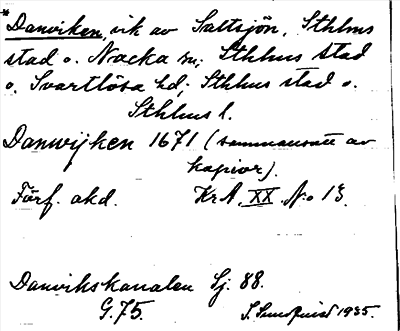 * Danviken, vik av Saltsjön, Sthlms
stad o. Nacka sn; Sthlms stad
o. Svartlösa hd; Sthlms stad o.
Sthlms l.
Danwijken 1671 (sammansatt av
kopior).
Förf. akd. KrA. XX. No 13.
Danvikskanalen Sj. 88.
G. 75. S. Sundquist 1935.